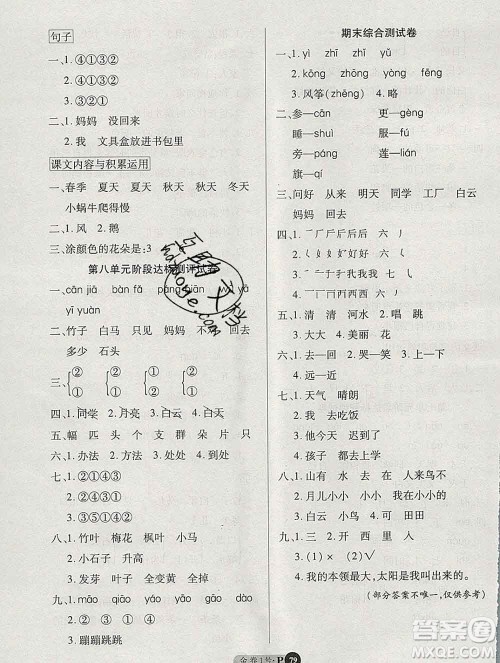 句子
一、1. ④①③②
2. ①④③②
3. ③②①
二、1. 妈妈 没回来
2. 我 文具盒放进书包里
课文内容与积累运用
一、春季 夏天 夏天 秋天 秋天 冬天
小蜗牛爬得慢
二、1. 风 2. 鹅
三、涂颜色的花朵是:3
第八单元阶段达标测评试卷
yī yuàn
二、竹子 白马 只见 妈妈 不同 回来
多少 石头
四、1. 同学 2. 半个 3. 白云 4. 白云
五、幅 匹 头 个 支 群 朵 片 只
六、1. 办法 2. 方法 3. 到处 4. 到处
七、1. ②①④③
2. ③①④②
3. ③⑤④①②
八、1. 竹叶 梅花 枫叶 小马
2. 小石子 升高
3. 发芽 叶子 慢慢 弯弯
九、1. māo qiāo
3. 蹦蹦跳跳
金卷1号·P 79
期末综合测试卷
一、1. yì zhī zhī zhǐ
2. kǒng zhōng yóng fēng
3. 风筝(zhēng) 4. 略
二、参—cān 更—gēng
睡—shuì 服—fú
旁—páng 莲—lián
旗—qí
三、问好 从来 明天 同学 工厂 白云
妈妈 回去
五、1. 清 清 河水 2. 唱 跳
3. 大海 大山 4. 美丽 花
六、1. 进—出 2. 哭—笑 3. 上—下
4. 远—近
七、1. 天气 晴朗
2. 我 去吃饭
3. 他 今天 迟到了
4. 孩子 都上学
八、1. 山有 水 去 在 人来鸟不
2. 月儿 小小 小小 我在
3. 白云 小草 4. 可 田田
九、1. 三 2. 开 西 里
3. (1)× (2)√
4. 我的本领最大,太阳是我叫出来的。
(部分答案不唯一,仅供参考)